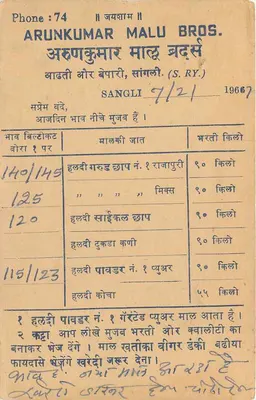 Phone : 74 ॥ जयशाम ॥
ARUNKUMAR MALU BROS.
अरुणकुमार मालू ब्रदर्स
आढती और बेपारी, सांगली. (S. RY.)
SANGLI 7/2/ 1966 7
सप्रेम वंदे,
आजदिन भाव नीचे मुजब हैं ।
भाव बिल्टीकट बोरा १ पर मालकी जात भरती किलो
140/145 हलदी गरुड छाप नं. १ राजापुरी ९० किलो
125 " " " " मिक्स ९० किलो
120 हलदी साईकल छाप ९० किलो
हलदी टुकडा कणी ९० किलो
115/123 हलदी पावडर नं. १ प्युअर ९० किलो
हलदी कोचा ५५ किलो
१ हलदी पावडर नं. १ गॅरंटेड प्युअर माल आता हैं ।
२ कट्टा आप लीखे मुजब भरती और क्वालीटी का
बनाकर भेज देंगे । माल खोतका बीगर डंकी बढीया
फायदासे भेजेंगे खरेदी जरूर देना ।
नया माल आ रहा है